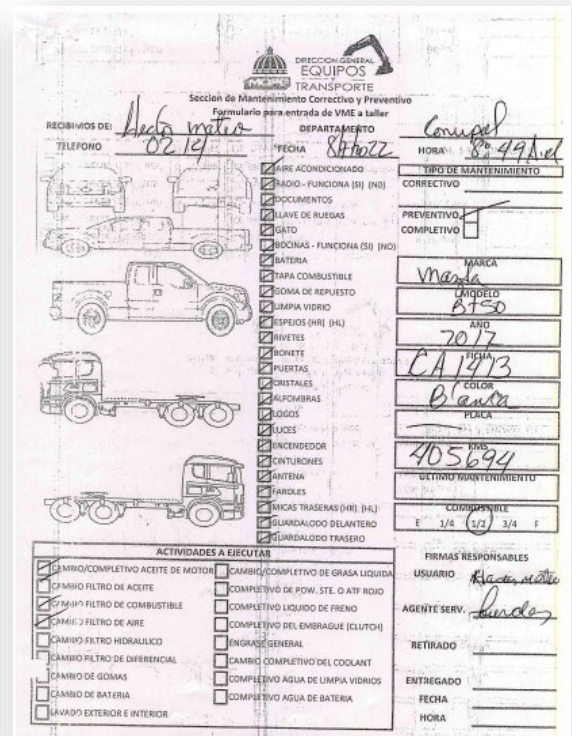 DIRECCION GENERAL
EQUIPOS
Y
TRANSPORTE
MOPC
Seccion de Mantenimiento Correctivo y Preventivo
Formulario para entrada de VME a taller
RECIBIMOS DE: Hector mateo DEPARTAMENTO
TELEFONO FECHA HORA
AIRE ACONDICIONADO
RADIO - FUNCIONA (SI) (NO)
DOCUMENTOS
LLAVE DE RUEGAS
GATO
BOCINAS - FUNCIONA (SI) (NO)
BATERIA
TAPA COMBUSTIBLE
GOMA DE REPUESTO
LIMPIA VIDRIO
ESPEJOS (HR) (HL)
RIVETES
BONETE
PUERTAS
CRISTALES
ALFOMBRAS
LOGOS
LUCES
ENCENDEDOR
CINTURONES
ANTENA
FAROLES
MICAS TRASERAS (HR) (HL)
GUARDALODO DELANTERO
GUARDALODO TRASERO
TIPO DE MANTENIMIENTO
CORRECTIVO
PREVENTIVO
COMPLETIVO
MARCA
Mazda
MODELO
BT50
AÑO
2017
FICHA
CA1413
COLOR
Blanca
PLACA
KMS
405694
ULTIMO MANTENIMIENTO
COMBUSTIBLE
E 1/4 1/2 3/4 F
ACTIVIDADES A EJECUTAR
CAMBIO/COMPLETIVO ACEITE DE MOTOR
CAMBIO FILTRO DE ACEITE
CAMBIO FILTRO DE COMBUSTIBLE
CAMBIO FILTRO DE AIRE
CAMBIO FILTRO HIDRAULICO
CAMBIO FILTRO DE DIFERENCIAL
CAMBIO DE GOMAS
CAMBIO DE BATERIA
LAVADO EXTERIOR E INTERIOR
CAMBIO/COMPLETIVO DE GRASA LIQUIDA
COMPLETIVO DE POW. STE. O ATF ROJO
COMPLETIVO LIQUIDO DE FRENO
COMPLETIVO DEL EMBRAGUE (CLUTCH)
ENGRASE GENERAL
CAMBIO COMPLETIVO DEL COOLANT
COMPLETIVO AGUA DE LIMPIA VIDRIOS
COMPLETIVO AGUA DE BATERIA
FIRMAS RESPONSABLES
USUARIO Hector mateo
AGENTE SERV.
RETIRADO
ENTREGADO
FECHA
HORA